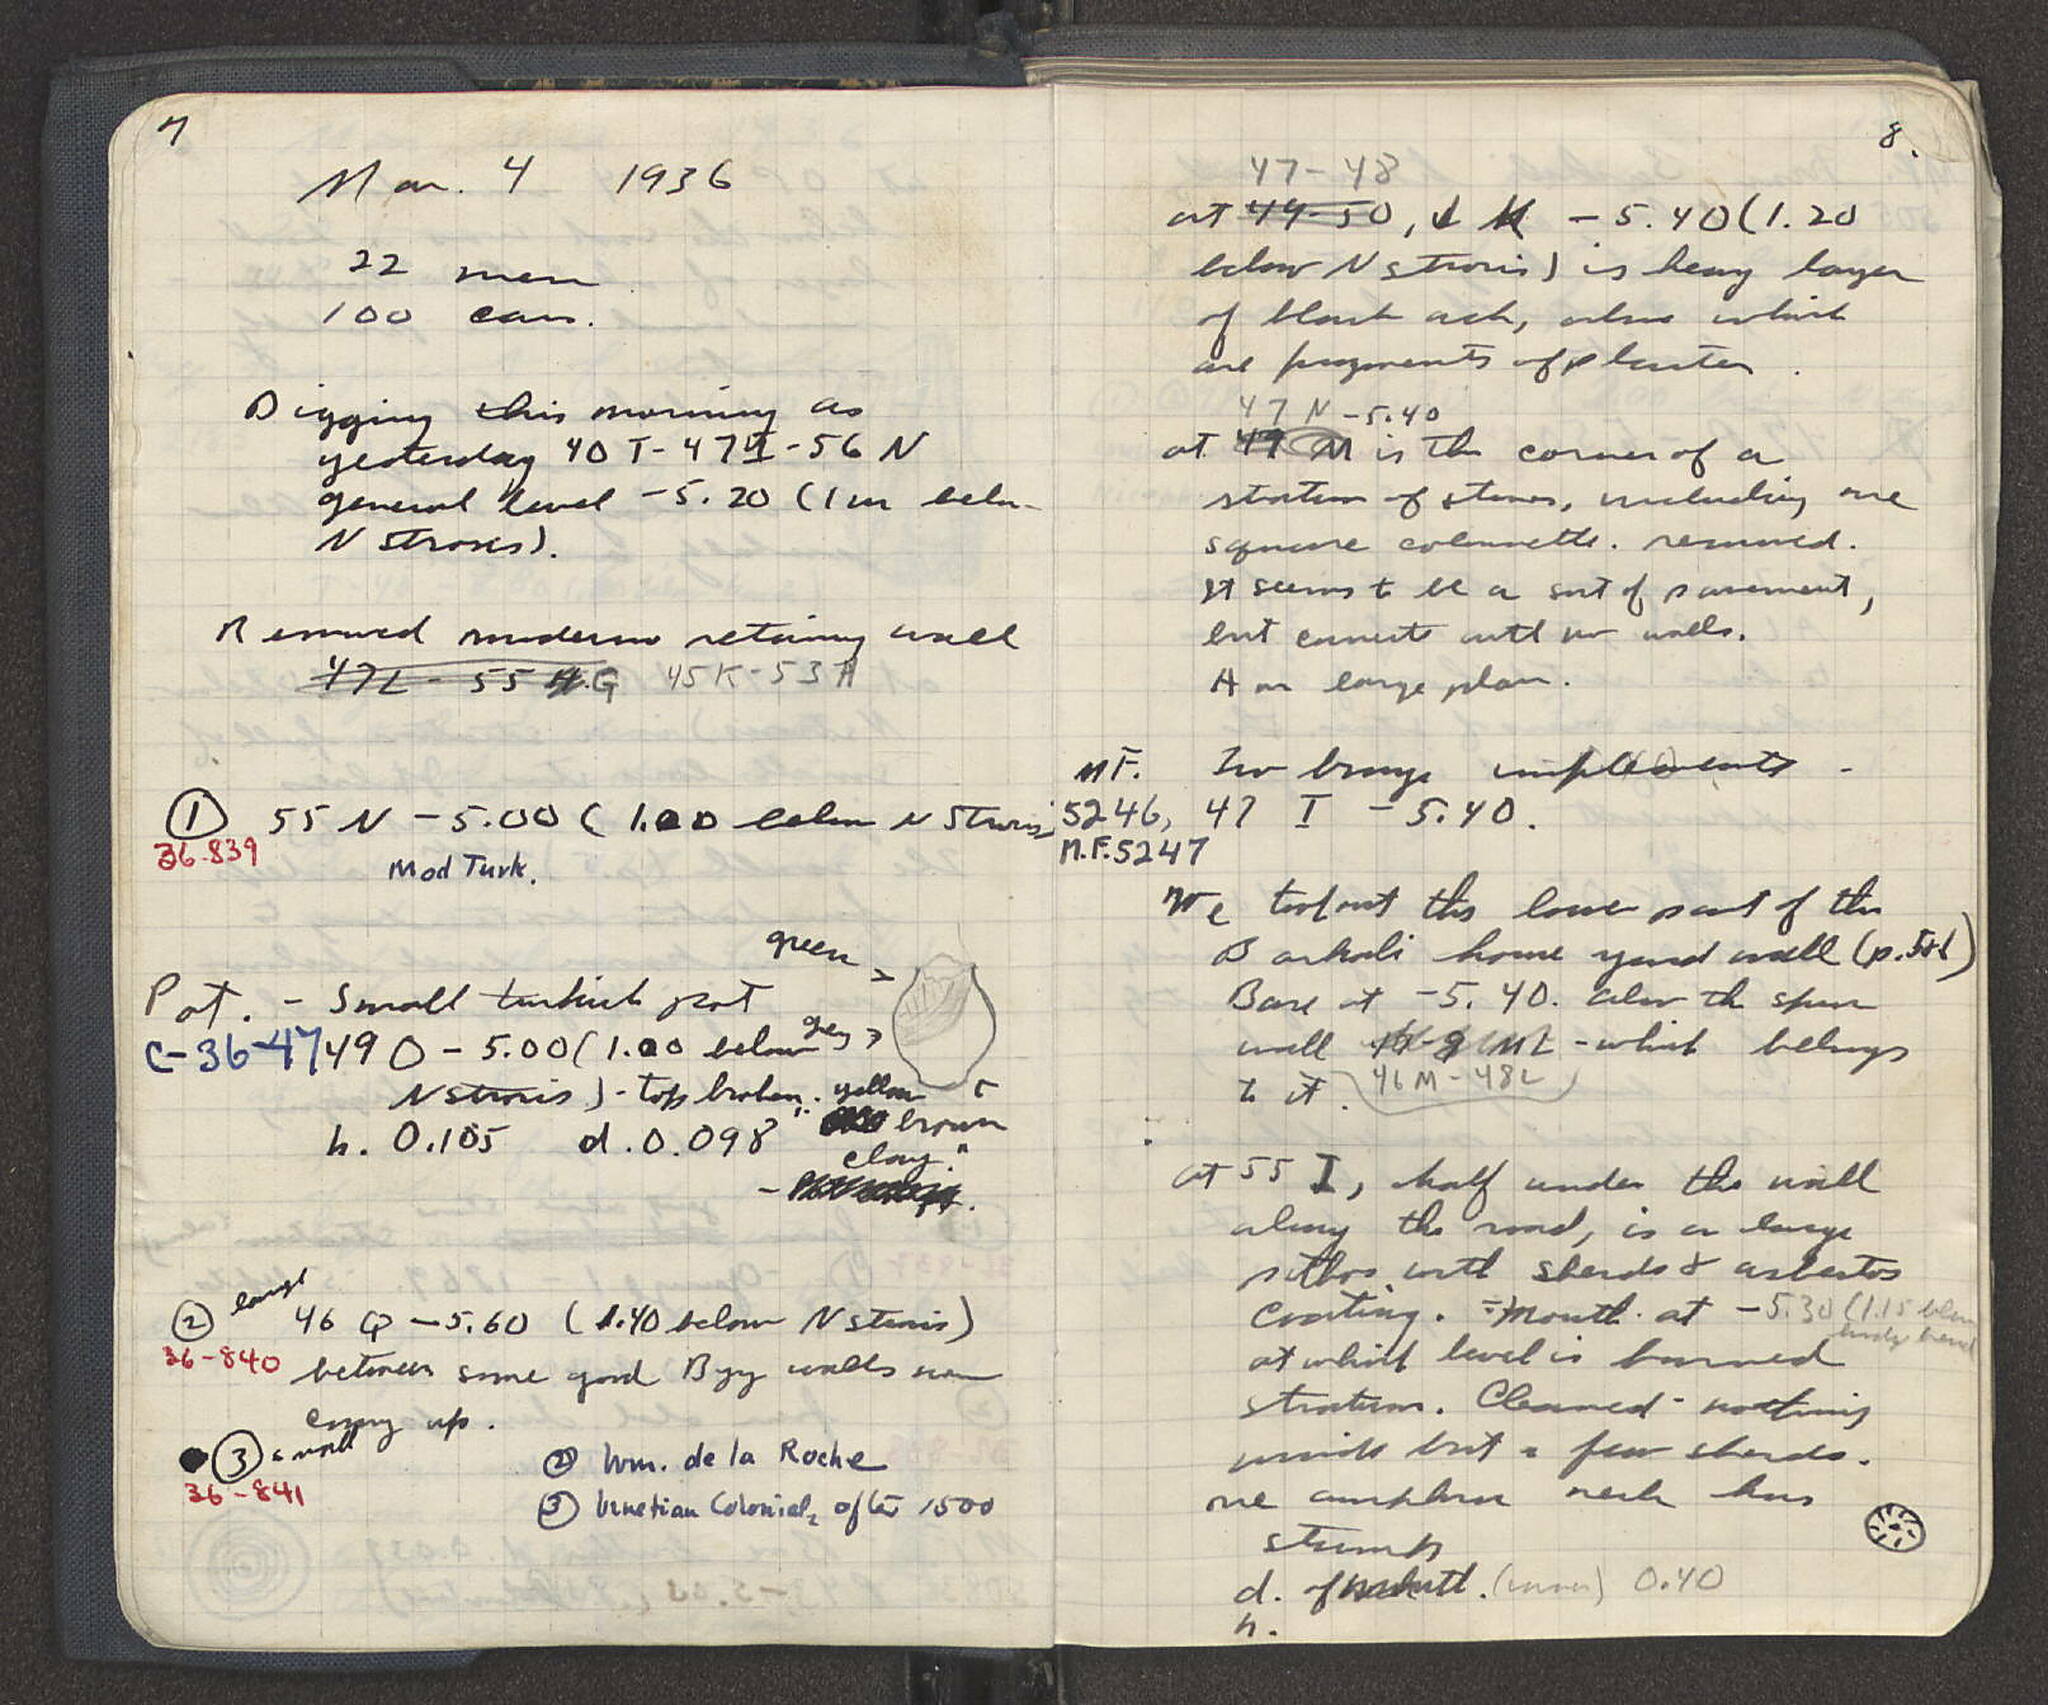 7
Mar. 4 1936
22 men
100 cars.
Digging this morning as
yesterday 40 T-47 I-56 N
general level -5.20 (1 m below
N strosis).
Removed modern retaining wall
47L - 55 G 45K-53 H
① 55 N - 5.00 (1.00 below N Strosis
36-839
Mod Turk.
green >
Pot. - Small turkish pot
grey >
C-36-47 49 O - 5.00 (1.00 below
N strosis) - top broken. yellow
h. 0.105 d. 0.098 brown
clay.
② large 46 Q - 5.60 (1.40 below N strosis)
36-840
between some good Byz walls now
coming up.
③ small
36-841
② Wm. de la Roche
③ Venetian Colonial, after 1500
8.
47-48
at 49-50, K - 5.40 (1.20
below N strosis) is heavy layer
of black ash, above which
are fragments of plaster.
47 N -5.40
at 49 M is the corner of a
stratum of stones, including one
square colonnette. removed.
It seems to be a sort of pavement,
but connects with no walls.
A on large plan.
MF. Two bronze implements -
5246, 47 I - 5.40.
M.F. 5247
We took out the lower part of the
Barkoli house yard wall (p. 5)
Base at -5.40. Also the spur
wall - which belongs
to it. 46M-48L
at 55 I, half under the wall
along the road, is a large
pithos with sherds & asbestos
coating. Mouth at -5.30 (1.15 below
at which level is burned
stratum. Cleaned - nothing
inside but a few sherds.
one amphora neck has
stamp
d. of mouth. (inner) 0.40
h.